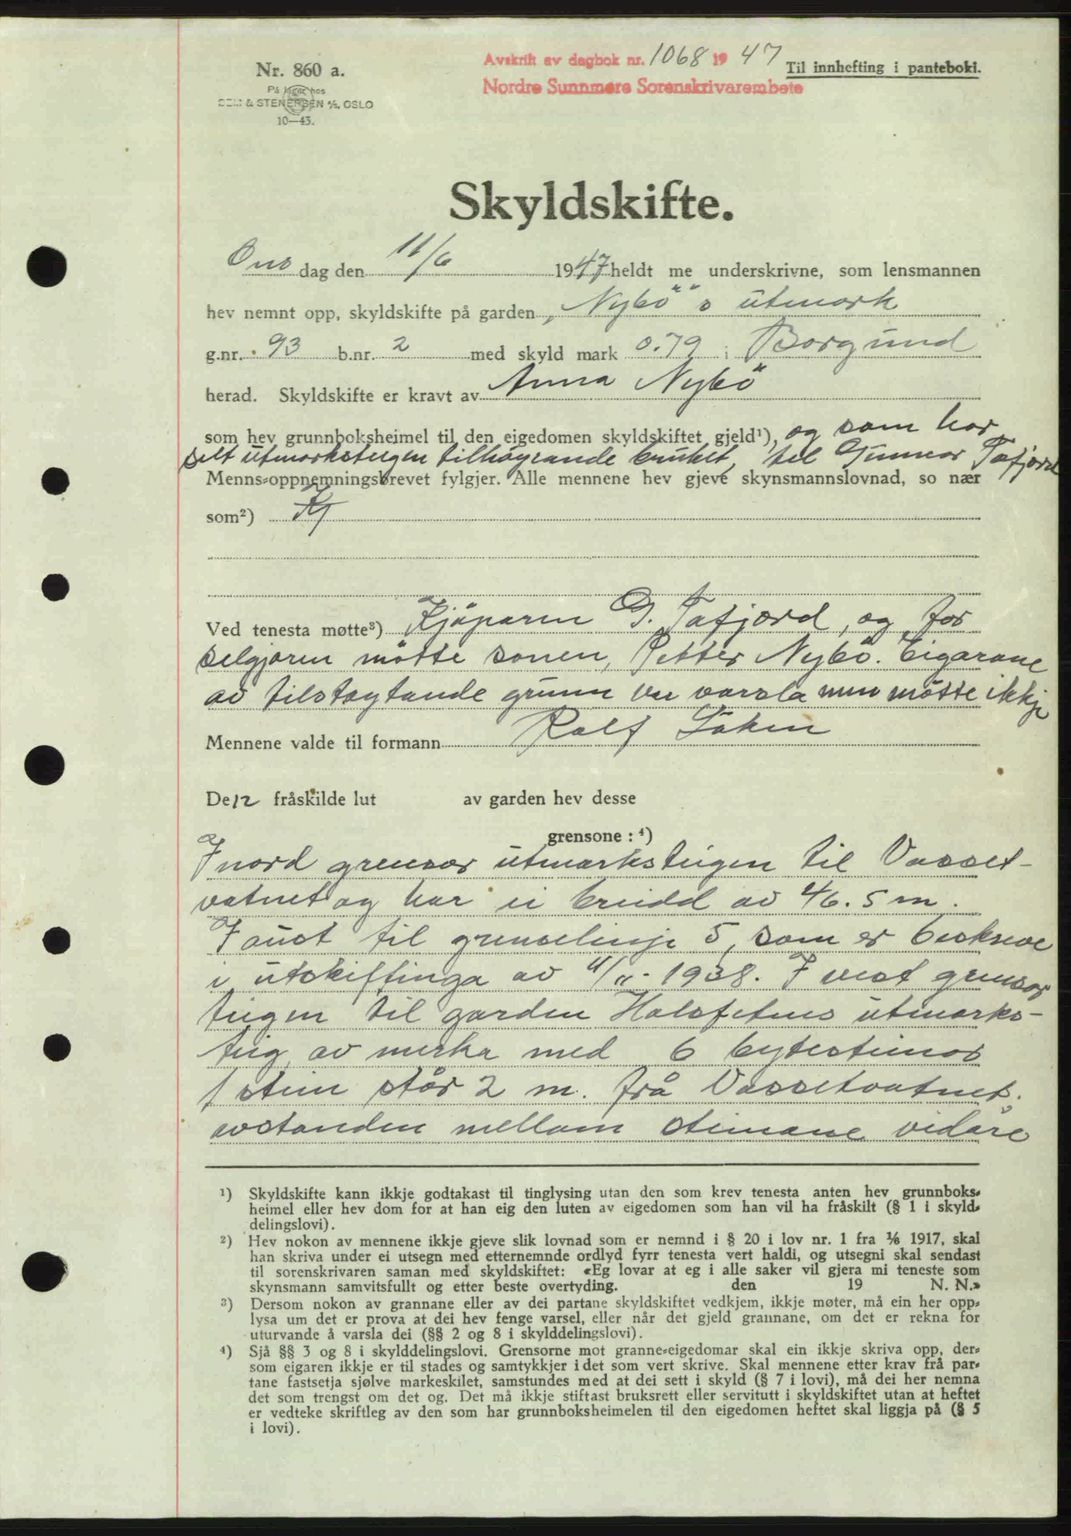 Nr. 860 a.
På lager hos
SEM & STENERSEN A/S, OSLO
10—43.
Avskrift av dagbok nr. 1068 1947
Nordre Sunnmøre Sorenskrivarembete
Til innhefting i panteboki.
Skyldskifte.
Ons dag den 11/6 1947 heldt me underskrivne, som lensmannen
hev nemnt opp, skyldskifte på garden „Nybö"s utmark
g.nr. 93 b.nr. 2 med skyld mark 0.79 i Borgund
herad. Skyldskifte er kravt av Anna Nybö
som hev grunnboksheimel til den eigedomen skyldskiftet gjeld¹), og som har
selt utmarksteigen tilhøyrande bruket, til Gunnar Tafjord
Menns⸗oppnemningsbrevet fylgjer. Alle mennene hev gjeve skynsmannslovnad, so nær
som²)
Ved tenesta møtte³) Kjöparen G. Tafjord, og for
selgjaren mötte sonen, Petter Nybö. Eigarane
av tilstøytande grunn var varsla men mötte ikkje
Mennene valde til formann Rolf
De12 fråskilde lut av garden hev desse
grensone : ⁴)
I nord grensar utmarksteigen til Vasset-
vatnet og har ei breidd av 46.5 m.
I aust til grenselinje 5, som er beskreve
i utskiftinga av 4/11-1938. I vest grensar
teigen til garden Holsfetens utmarks-
teig av merka med 6 bytesteinar
1 stein står 2 m. frå Vassetvatnet.
avstanden mellom steinane vidare
¹) Skyldskifte kann ikkje godtakast til tinglysing utan den som krev tenesta anten hev grunnboks⸗
heimel eller hev dom for at han eig den luten av eigedomen som han vil ha fråskilt (§ 1 i skyld⸗
delingslovi).
²) Hev nokon av mennene ikkje gjeve slik lovnad som er nemnd i § 20 i lov nr. 1 fra ⅙ 1917, skal
han skriva under ei utsegn med etternemnde ordlyd fyrr tenesta vert haldi, og utsegni skal sendast
til sorenskrivaren saman med skyldskiftet: «Eg lovar at eg i alle saker vil gjera mi teneste som
skynsmann samvitsfullt og etter beste overtyding. den 19 N. N.»
³) Dersom nokon av grannane eller av dei partane skyldskiftet vedkjem, ikkje møter, må ein her opp⸗
lysa um det er prova at dei hev fenge varsel, eller når det gjeld grannane, om det er rekna for
uturvande å varsla dei (§§ 2 og 8 i skylddelingslovi).
⁴) Sjå §§ 3 og 8 i skylddelingslovi. Grensorne mot granne⸗eigedomar skal ein ikkje skriva opp, der⸗
som eigaren ikkje er til stades og samtykkjer i det som vert skrive. Skal mennene etter krav frå par⸗
tane fastsetja sjølve markeskilet, samstundes med at dei sett i skyld (§ 7 i lovi), må dei her nemna
det som trengst om det og. Det må ikkje stiftast bruksrett eller servitutt i skyldskiftet utan at heftet
er vedteke skriftleg av den som har grunnboksheimelen til den eigedomen heftet skal liggja på (§ 5
i lovi).